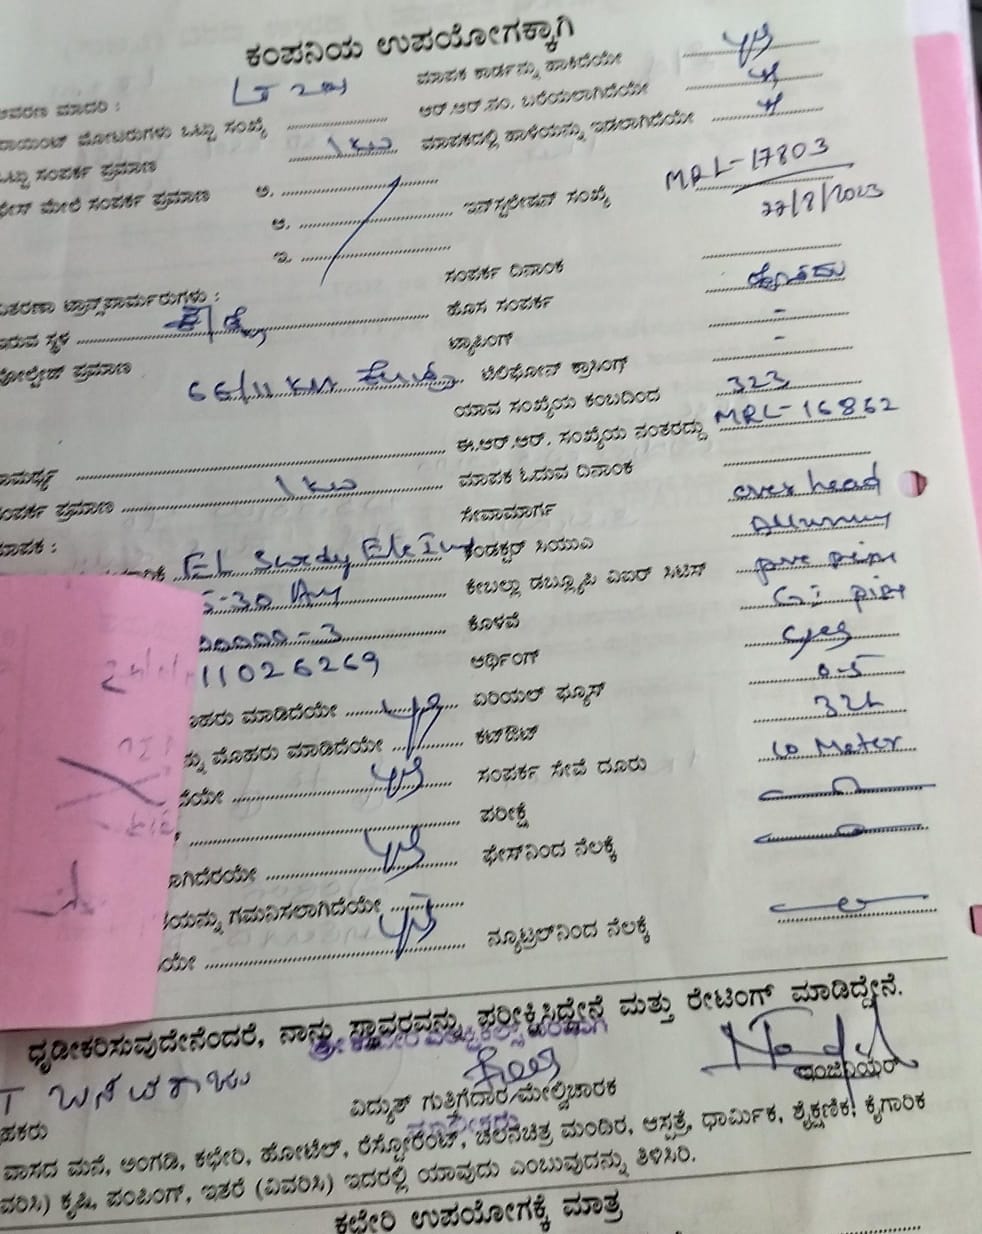 ಕಂಪನಿಯ ಉಪಯೋಗಕ್ಕಾಗಿ
ಆವರಣ ಮಾದರಿ : LT 2a ಮಾಪಕ ಕಾರ್ಡನ್ನು ಹಾಕಿದೆಯೇ yes
ಪಾಯಿಂಟ್ ಮೋಟರುಗಳು ಒಟ್ಟು ಸಂಖ್ಯೆ ಆರ್.ಆರ್.ನಂ. ಬರೆಯಲಾಗಿದೆಯೇ
ಒಟ್ಟು ಸಂಪರ್ಕ ಪ್ರಮಾಣ 1 kw ಮಾಪಕದಲ್ಲಿ ಹಾಳೆಯನ್ನು ಇಡಲಾಗಿದೆಯೇ
ಫೇಸ್ ಮೇಲೆ ಸಂಪರ್ಕ ಪ್ರಮಾಣ ಅ.
ಆ. ಇನ್‌ಸ್ಟಲೇಷನ್ ಸಂಖ್ಯೆ MRL-17803
27/8/2023
ಇ.
ಸಂಪರ್ಕ ದಿನಾಂಕ
ವಿತರಣಾ ಟ್ರಾನ್ಸ್‌ಫಾರ್ಮರುಗಳು : ಹೊಸ ಸಂಪರ್ಕ ಹೊಸದು
ಇರುವ ಸ್ಥಳ ಟ್ಯಾಪಿಂಗ್ -
ವೋಲ್ಟೇಜ್ ಪ್ರಮಾಣ 66/11 KV ಟೆಲಿಫೋನ್ ಕ್ರಾಸಿಂಗ್ -
ಯಾವ ಸಂಖ್ಯೆಯ ಕಂಬದಿಂದ 323
ಸಾಮರ್ಥ್ಯ ಈ.ಆರ್.ಆರ್. ಸಂಖ್ಯೆಯ ನಂತರದ್ದು MRL-16862
ಸಂಪರ್ಕ ಪ್ರಮಾಣ 1 kw ಮಾಪಕ ಓದುವ ದಿನಾಂಕ
ಮಾಪಕ : ಸೇವಾಮಾರ್ಗ over head
EL Swedy Ele ಕಂಡಕ್ಟರ್ ಸಿಯುಎ
5-30 ಕೇಬಲ್ಲಾ ಡಬ್ಲ್ಯೂಪಿ ವಿಐಆರ್ ಸಿಟಿಸ್ pvc
00000-3 ಕೊಳವೆ GI pipe
11026269 ಅರ್ಥಿಂಗ್ yes
ಮೊಹರು ಮಾಡಿದೆಯೇ yes ಏರಿಯಲ್ ಫ್ಯೂಸ್ 0-5
ನ್ನು ಮೊಹರು ಮಾಡಿದೆಯೇ ಕಟ್‌ಔಟ್ 32
ದೆಯೇ yes ಸಂಪರ್ಕ ಸೇವೆ ದೂರು 10 Meter
ಪರೀಕ್ಷೆ
ಲಾಗಿದೆರಯೇ yes ಫೇಸ್‌ನಿಂದ ನೆಲಕ್ಕೆ
ಯನ್ನು ಗಮನಿಸಲಾಗಿದೆಯೇ
ಯೇ yes ನ್ಯೂಟ್ರಲ್‌ನಿಂದ ನೆಲಕ್ಕೆ
ಧೃಡೀಕರಿಸುವುದೇನೆಂದರೆ, ನಾನು ಸ್ಥಾವರವನ್ನು ಪರೀಕ್ಷಿಸಿದ್ದೇನೆ ಮತ್ತು ರೇಟಿಂಗ್ ಮಾಡಿದ್ದೇನೆ.
T ಬಸವರಾಜು
ಹಕರು ವಿದ್ಯುತ್ ಗುತ್ತಿಗೆದಾರ/ಮೇಲ್ವಿಚಾರಕ ಇಂಜಿನಿಯರ್
ವಾಸದ ಮನೆ, ಅಂಗಡಿ, ಕಛೇರಿ, ಹೋಟೆಲ್, ರೆಸ್ಟೋರೆಂಟ್, ಚಲನಚಿತ್ರ ಮಂದಿರ, ಆಸ್ಪತ್ರೆ, ಧಾರ್ಮಿಕ, ಶೈಕ್ಷಣಿಕ, ಕೈಗಾರಿಕ
ವರಿಸಿ) ಕೃಷಿ, ಪಂಪಿಂಗ್, ಇತರೆ (ವಿವರಿಸಿ) ಇದರಲ್ಲಿ ಯಾವುದು ಎಂಬುವುದನ್ನು ತಿಳಿಸಿರಿ.
ಕಛೇರಿ ಉಪಯೋಗಕ್ಕೆ ಮಾತ್ರ